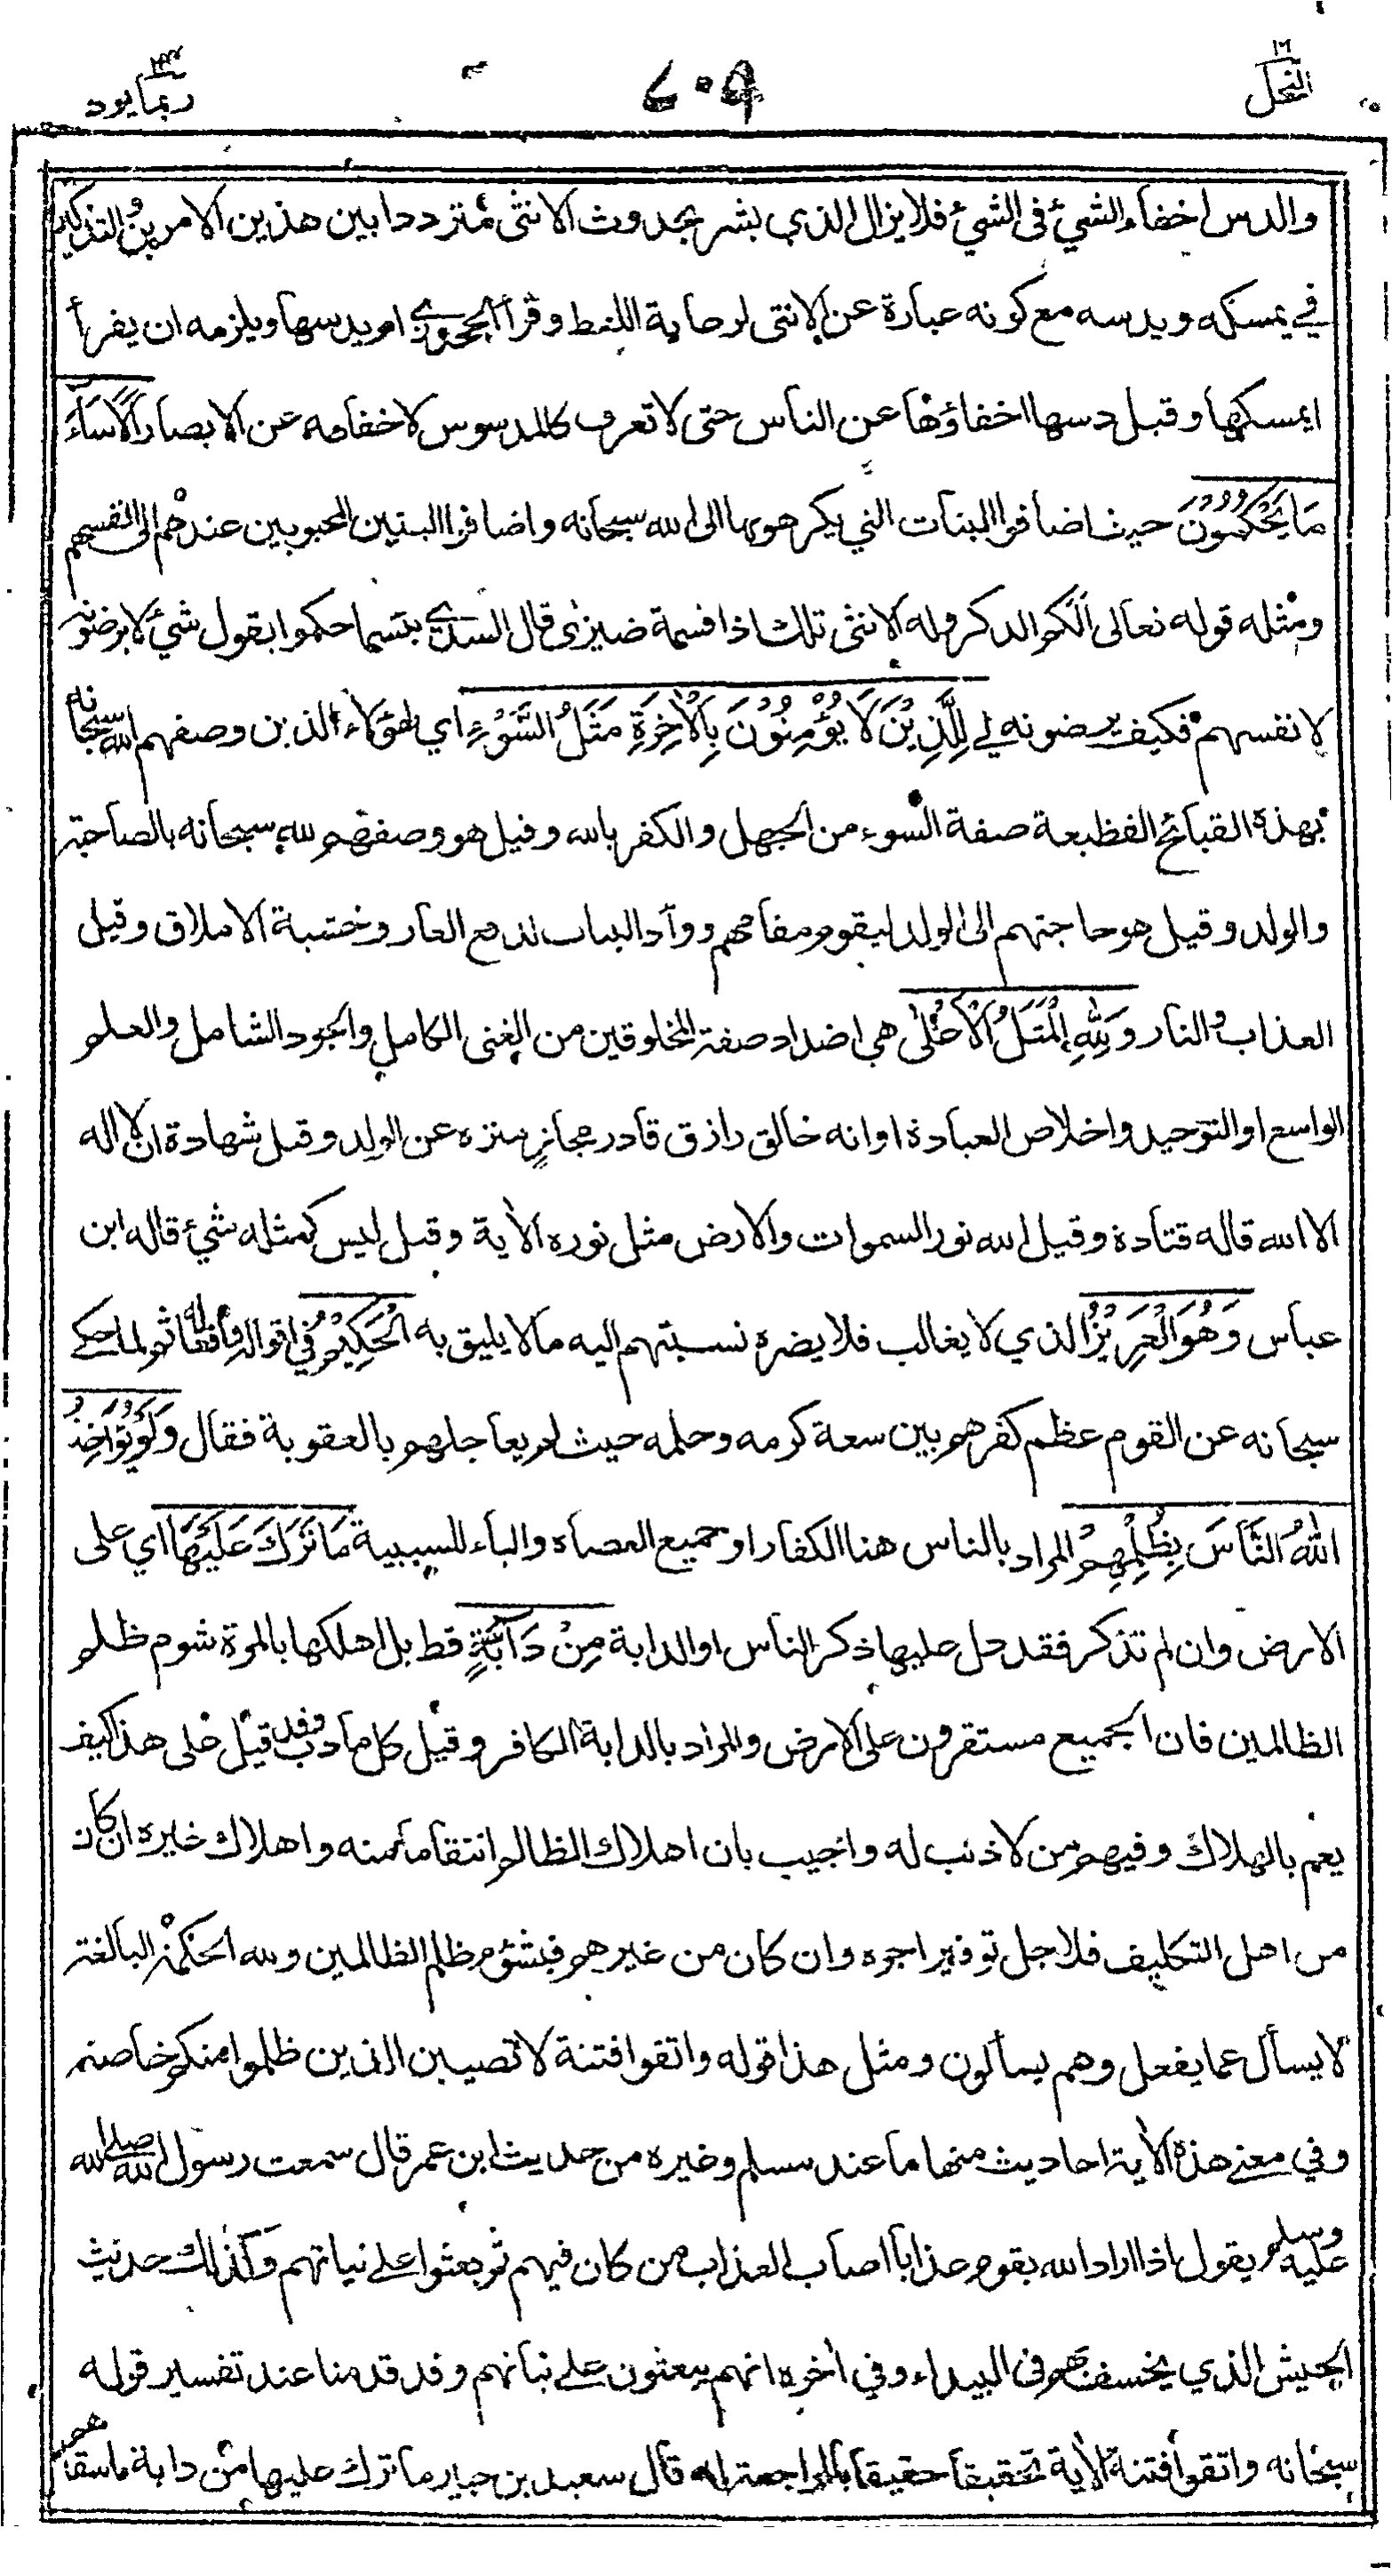 النحل ١٦
٦٠٩
ربما يود ١٤
والدس اخفاء الشيئ فى الشيئ فلا يزال الذي بشر بحدوث الانثى مترددا بين هذين الامرين والتذكير
في يمسكه ويدسه مع كونه عبارة عن الانثى لرعاية اللفظ وقرأ الجحدري ام يدسها ويلزمه ان يقرأ
ايمسكها وقيل دسها اخفاؤها عن الناس حتى لا تعرف كالمدسوس لاخفائه عن الابصار اَلَا سَآءَ
مَا يَحْكُمُوْنَ حيث اضافوا البنات التي يكرهونها الى الله سبحانه واضافوا البنين المحبوبين عندهم الى انفسهم
ومثله قوله تعالى ألكم الذكر وله الانثى تلك اذا قسمة ضيزى قال السدي بئسما حكموا بقول شيئ لا يرضونه
لانفسهم فكيف يرضونه لي لِلَّذِيْنَ لَا يُؤْمِنُوْنَ بِالْاٰخِرَةِ مَثَلُ السَّوْءِ اي لهؤلاء الذين وصفهم الله سبحانه
بهذه القبائح الفظيعة صفة السوء من الجهل والكفر بالله وقيل هو وصفهم لله سبحانه بالصاحبة
والولد وقيل هو حاجتهم الى الولد ليقوم مقامهم ووأد البنات لدفع العار وخشية الاملاق وقيل
العذاب والنار وَلِلّٰهِ الْمَثَلُ الْاَعْلٰى هي اضداد صفة المخلوقين من الغنى الكامل والجود الشامل والعلم
الواسع او التوحيد واخلاص العبادة او انه خالق رازق قادر مجاز منزه عن الولد وقيل شهادة ان لا اله
الا الله قاله قتادة وقيل الله نور السموات والارض مثل نوره الأية وقيل ليس كمثله شيئ قاله ابن
عباس وَهُوَ الْعَزِيْزُ الذي لا يغالب فلا يضره نسبتهم اليه ما لا يليق به الْحَكِيْمُ في اقواله وأفعاله ثم لما حكى
سبحانه عن القوم عظم كفرهم بين سعة كرمه وحلمه حيث لم يعاجلهم بالعقوبة فقال وَلَوْ يُؤَاخِذُ
اللهُ النَّاسَ بِظُلْمِهِمْ المراد بالناس هنا الكفار او جميع العصاه والباء للسببية مَا تَرَكَ عَلَيْهَا اي على
الارض وان لم تذكر فقد دل عليها ذكر الناس او الدابة مِنْ دَآبَّةٍ قط بل اهلكها بالمرة شوم ظلم
الظالمين فان الجميع مستقرون على الارض والمراد بالدابة الكافر وقيل كل ما دب وقد قيل على هذا كيف
يعم بالهلاك وفيهم من لا ذنب له واجيب بان اهلاك الظالم انتقاما منه واهلاك غيره ان كان
من اهل التكليف فلاجل توفير اجره وان كان من غيرهم فبشؤم ظلم الظالمين ولله الحكمة البالغة
لا يسأل عما يفعل وهم يسألون ومثل هذا قوله واتقوا فتنة لا تصيبن الذين ظلموا منكم خاصة
وفي معنى هذه الأية احاديث منها ما عند مسلم وغيره من حديث ابن عمر قال سمعت رسول الله صلى الله
عليه وسلم يقول اذا اراد الله بقوم عذابا اصاب العذاب من كان فيهم ثم بعثوا على نياتهم وكذلك حديث
الجيش الذي يخسف بهم فى البيداء وفي أخره انهم يبعثون على نياتهم وقد قدمنا عند تفسير قوله
سبحانه واتقوا فتنة الأية تحقيقا حقيقا بالمراجعة له قال سعيد بن جبير ما ترك عليها من دابة ما سقاهم